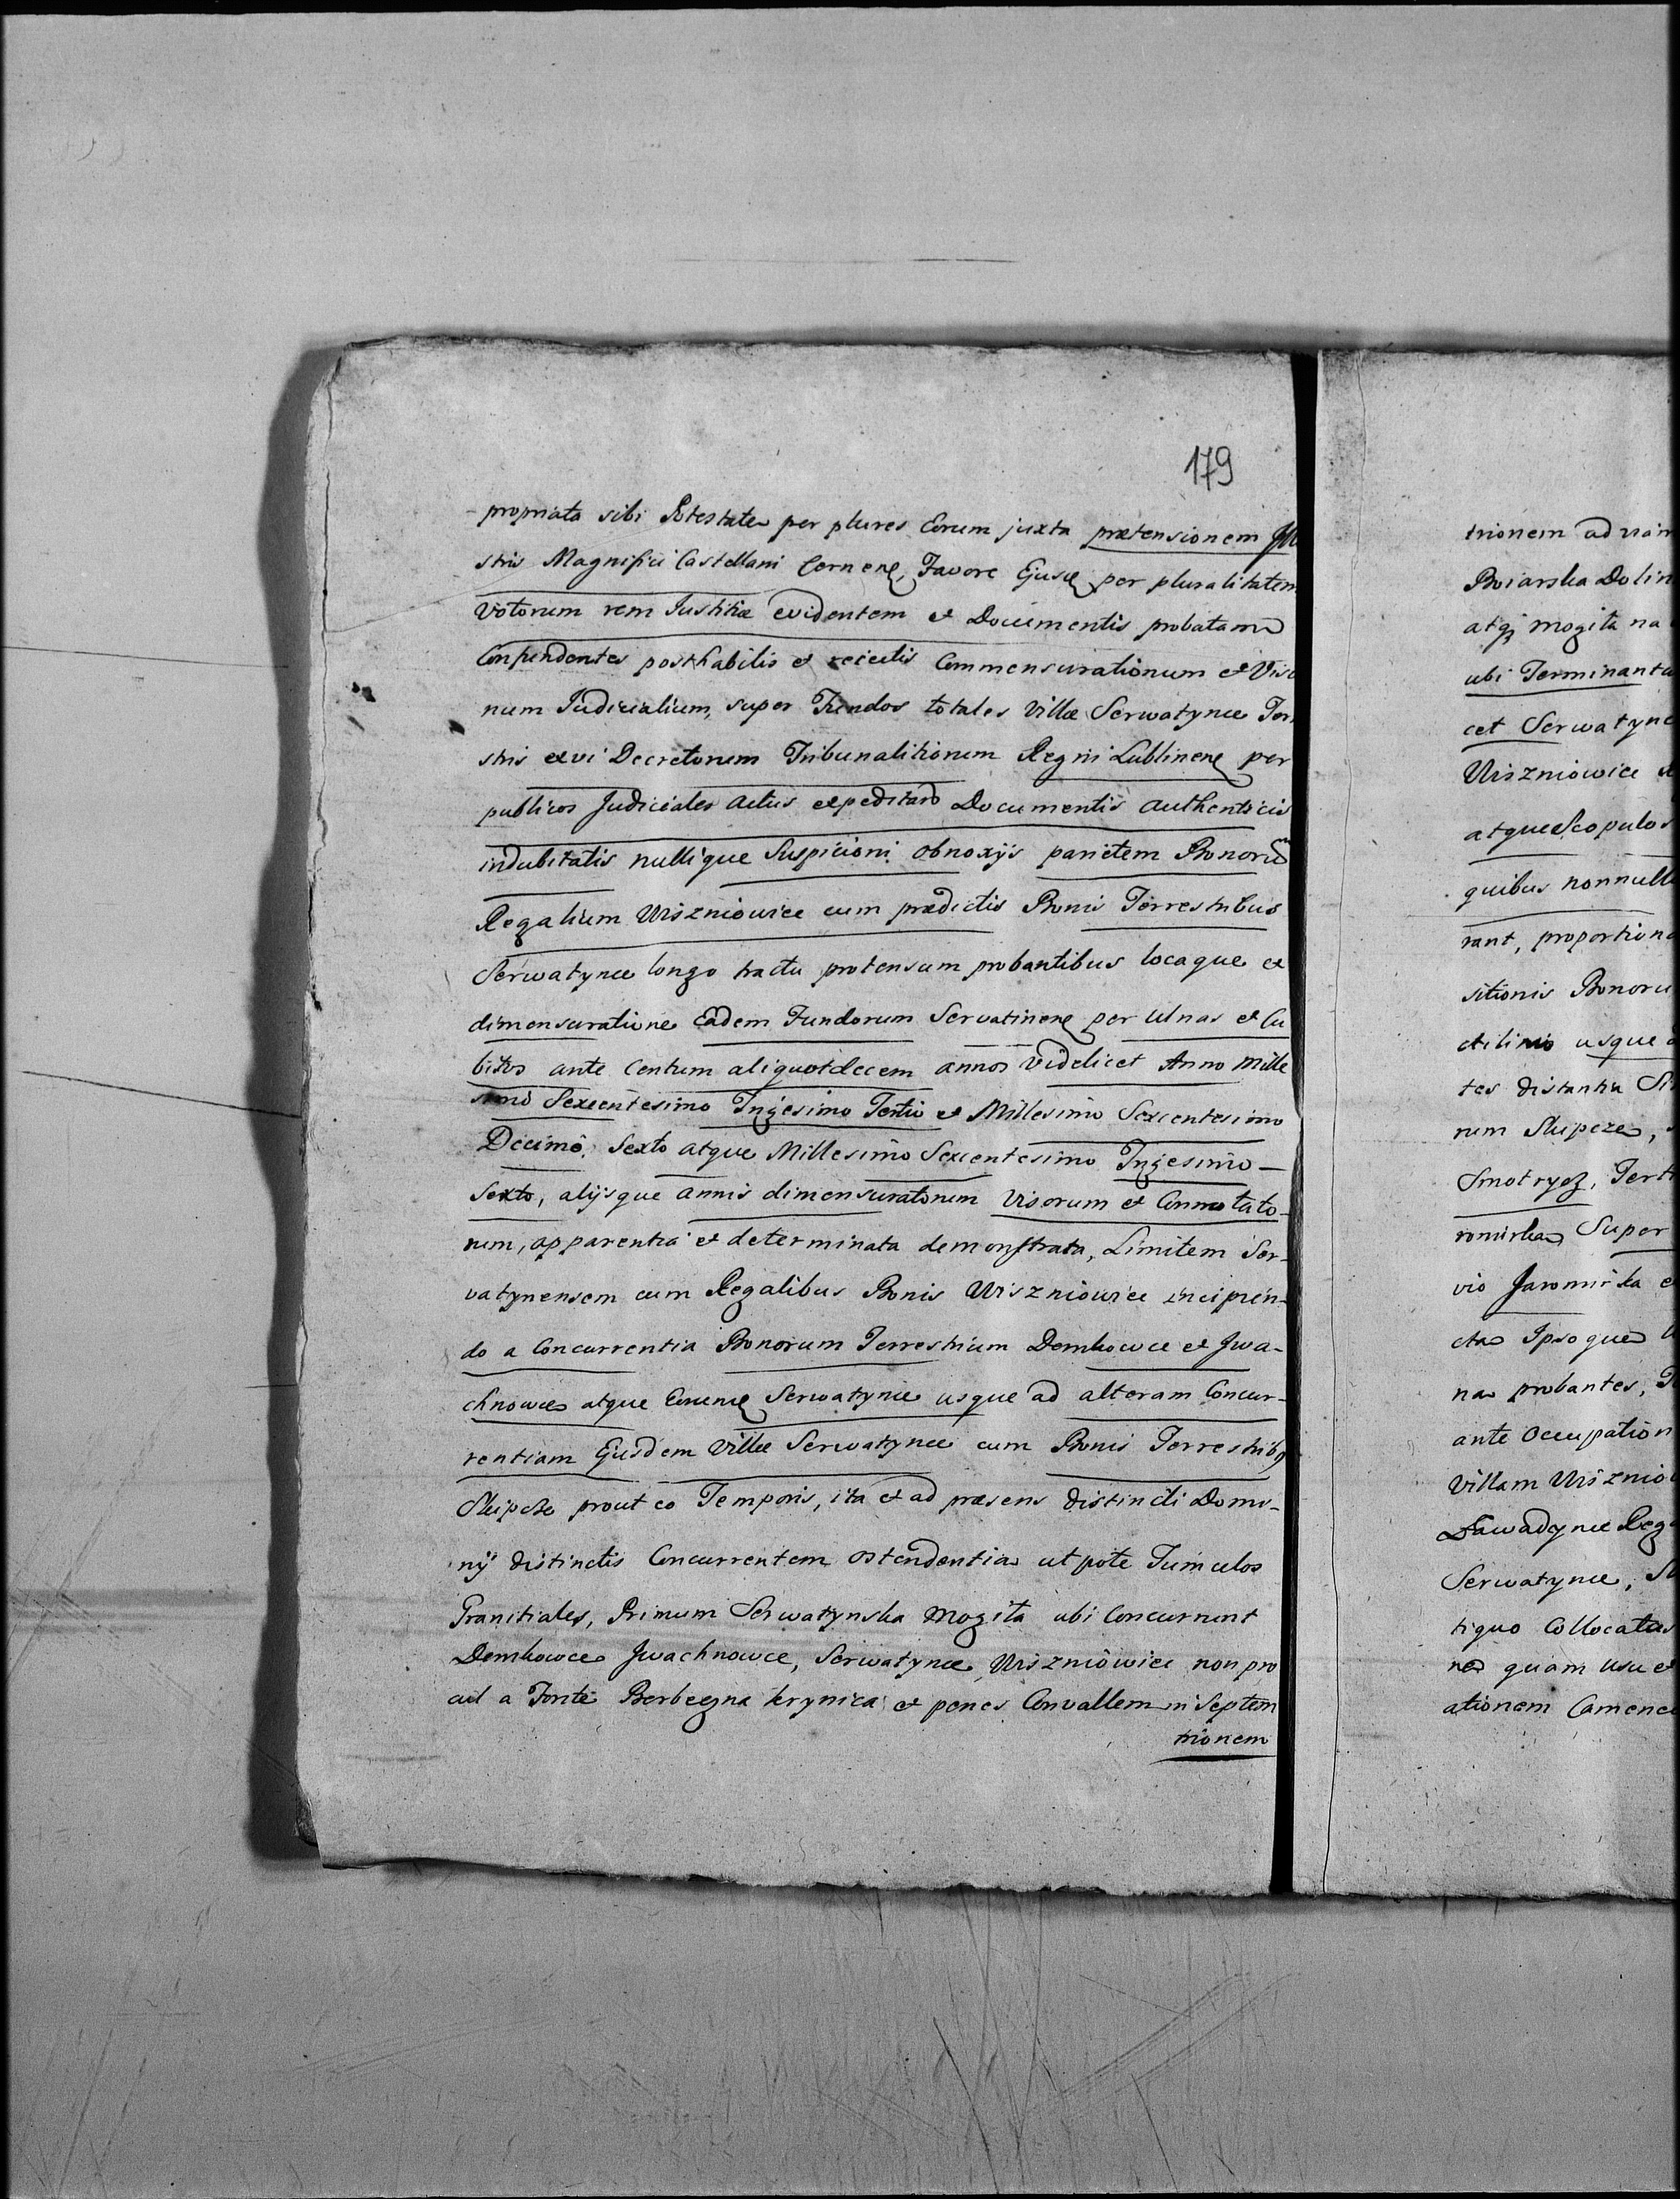 179
propriata sibi Potestate per plures Eorum juxta prætensionem Ill
stris Magnifici Castellani Cernenę, Favore Ejusę per pluralitatem
Votorum rem Justitiæ evidentem et Documentis probatam
Confundentes posthabitis et reiectis Commensurationum et Viso
num Judicialium, super Fundos totales Villæ Serwatynce Ter
stris ex vi Decretorum Tribunalitiorum Regni Lublinenę per
publicos Judiciales Actus expeditard Documentis Authenticis
indubitatis nullique Suspicioni obnoxijs parietem Bonorum
Regalium Wiszniowice cum prædictis Bonis Terrestribus
Serwatynce longo tractu protensum probantibus locaque et
dimensuratione Eadem Fundorum Servatinenę per Ulnas et Cu
bitos ante Centum aliquotdecem annos Videlicet Anno Mille
simo Sexcentesimo Trigesimo Tertio et Millesimo Sexcentesimo
Decimo Sexto atque Millesimo Sexcentesimo Trigesimo -
Sexto, alijsque annis dimensuratorum Visorum et Connotato-
rum, apparentia et determinata demonstrata, Limitem Ser-
vatynensem cum Regalibus Bonis Wiszniowice incipien-
do a Concurrentia Bonorum Terrestrium Demkowce et Jwa-
chnowce atque Eorumę Serwatynce usque ad alteram Concur-
rentiam Ejusdem Villæ Serwatynce cum Bonis Terrestribą
Slupcze prout eo Temporis, ita et ad præsens distincti Domi-
nij distinctis Concurrentem ostendentia utpote Tumulos
Granitiales, Primum Serwatynska Mogiła ubi Concurrunt
Demkowce Jwachnowce, Serwatynce, Wiszniowice non pro
cul a Fonte Berbeczna krynica et penes Convallem in Septem
trionem
trionem ad viam
Boiarska Dolin
atqȝ mogiła na
ubi Terminantu
cet Serwatync
Wiszniowice
atque Scopulos
quibus nonnull
rant, proportion
sitionis Bonoru
usque
tes distantia
rum Slupcze,
Smotrycz, Tert
romirka Super
vio Jaromirka e
ctæ Ipsoque
na probantes,
ante Occupation
Villam Wisznio
Zawadynce Reg
Serwatynce,
tiquo Collocatas
ne quam usu et
ationem Camene